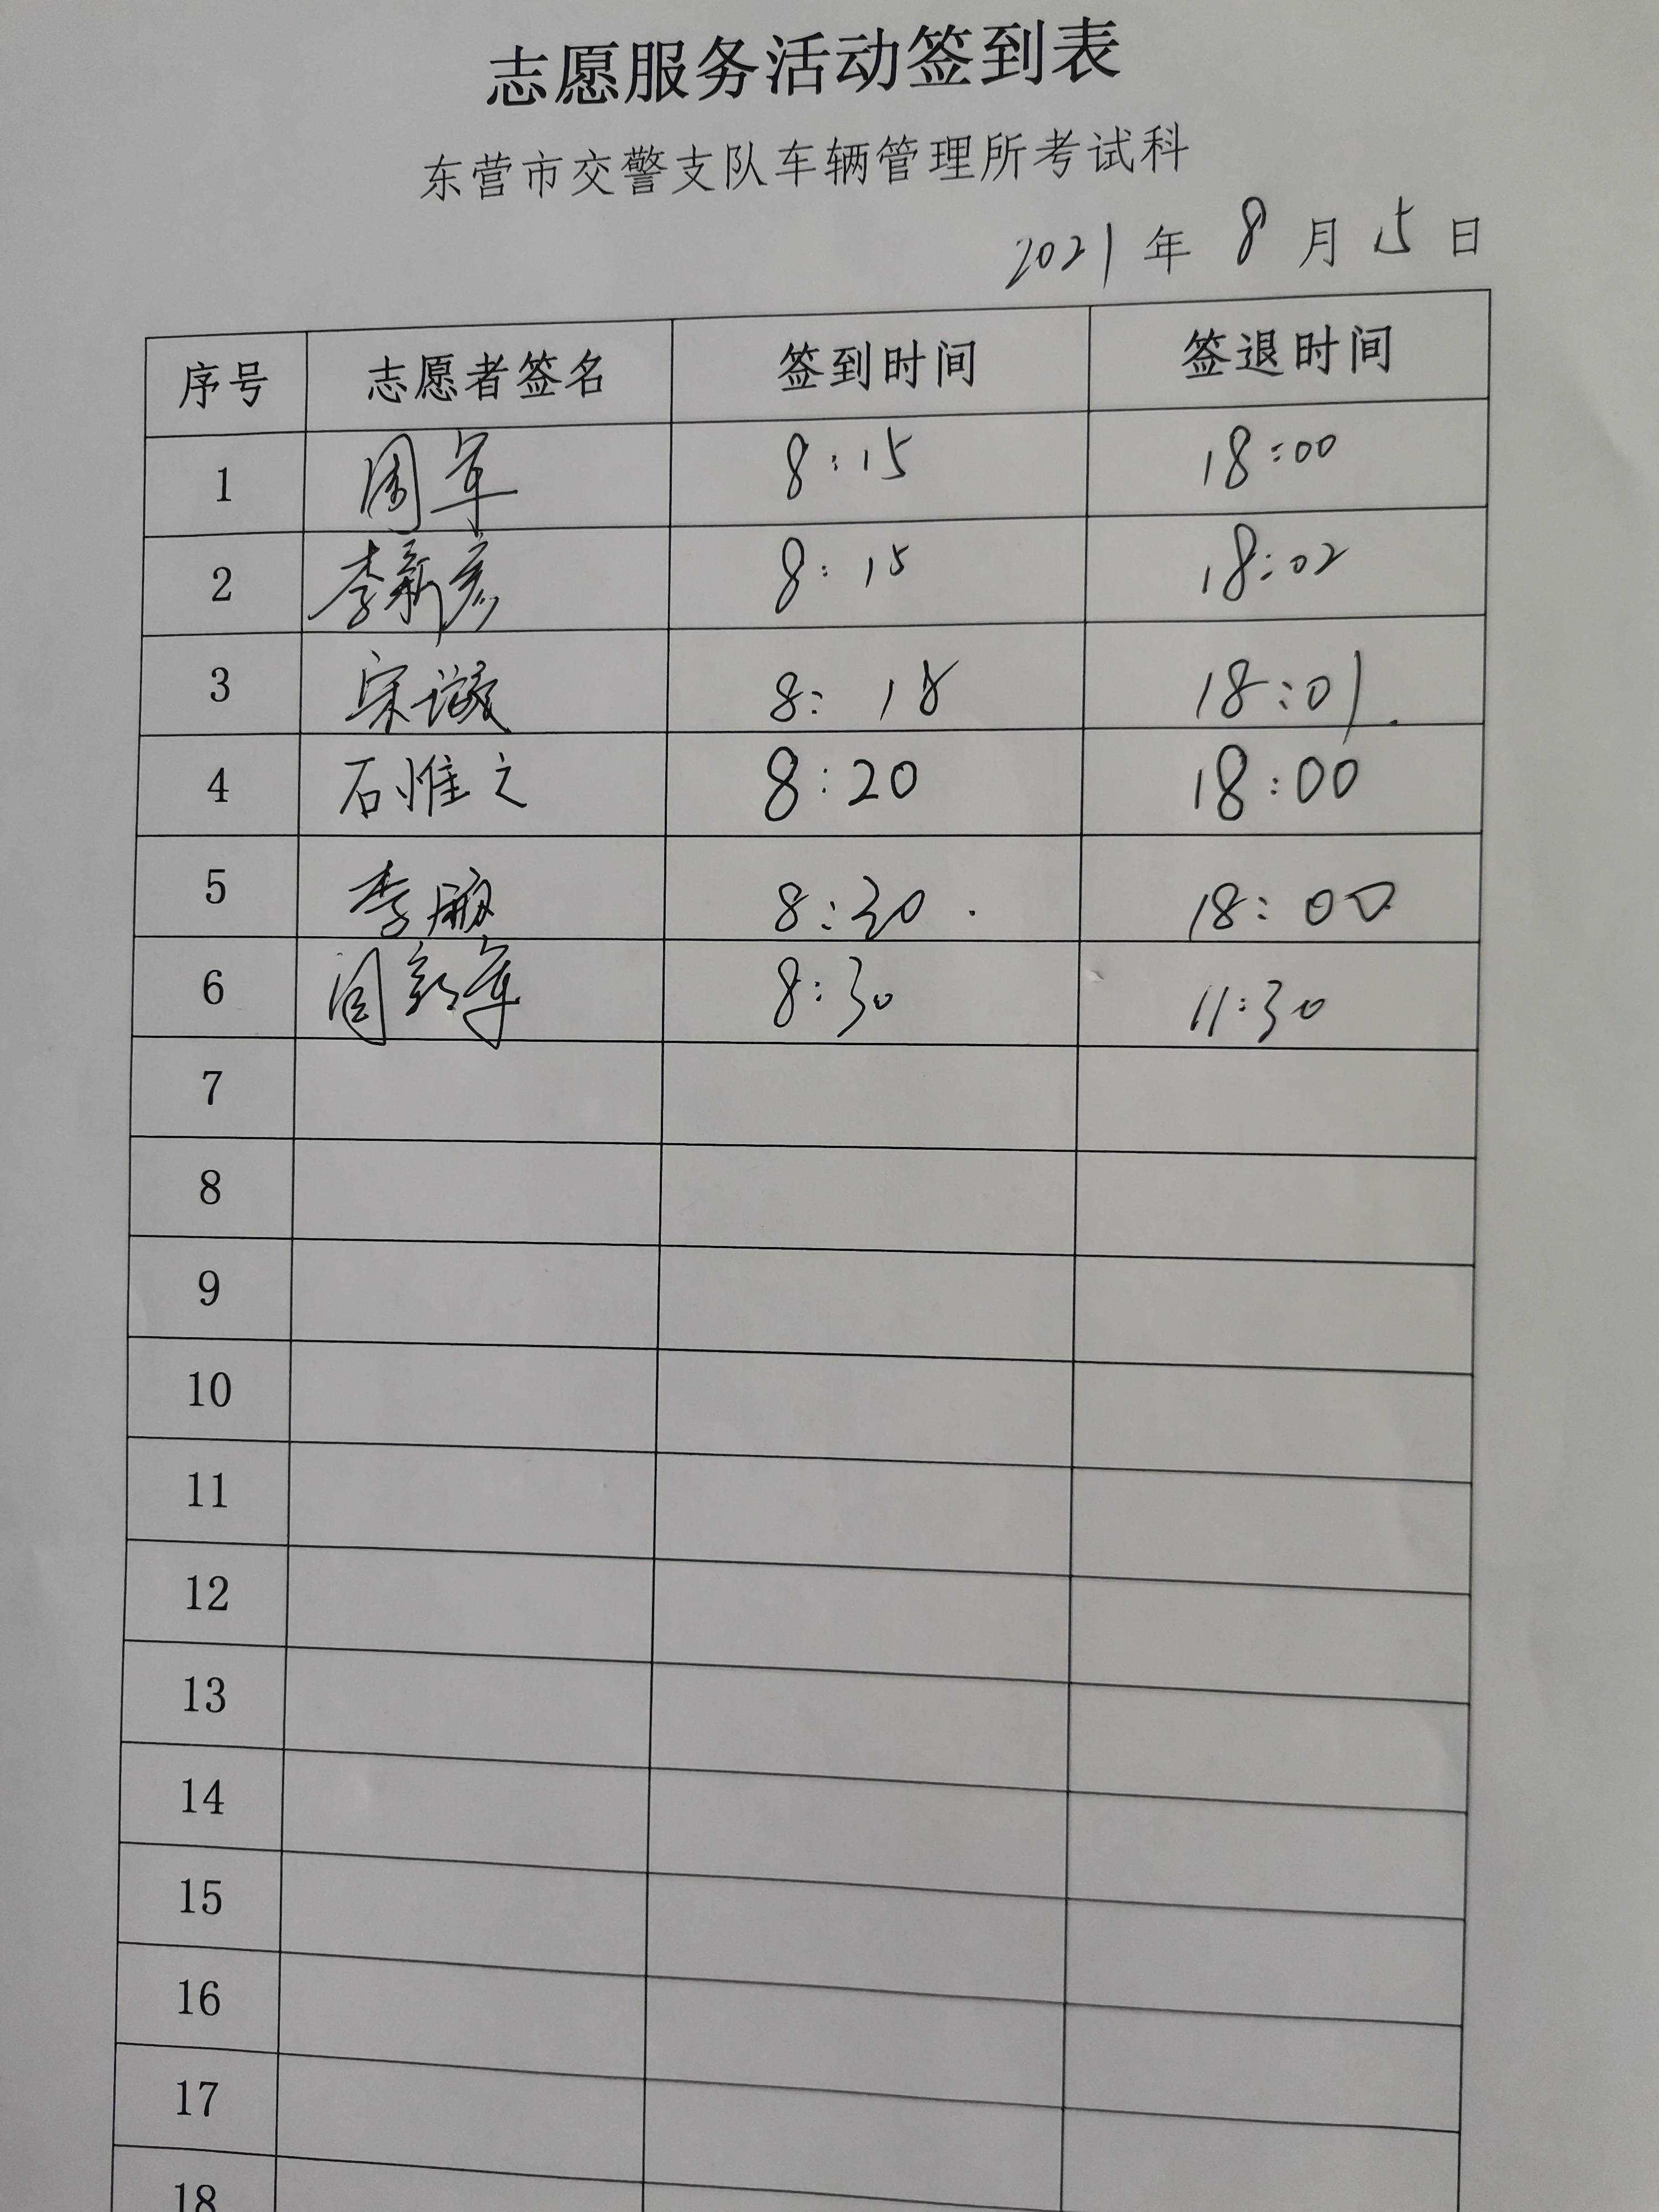 志愿服务活动签到表
东营市交警支队车辆管理所考试科
2021 年 8 月 15 日
序号 志愿者签名 签到时间 签退时间
1 周军 8:15 18:00
2 李新彦 8:15 18:02
3 宋 8: 18 18:01.
4 石惟之 8:20 18:00
5 李鹏 8:30. 18:00
6 周新军 8:30 11:30
7
8
9
10
11
12
13
14
15
16
17
18